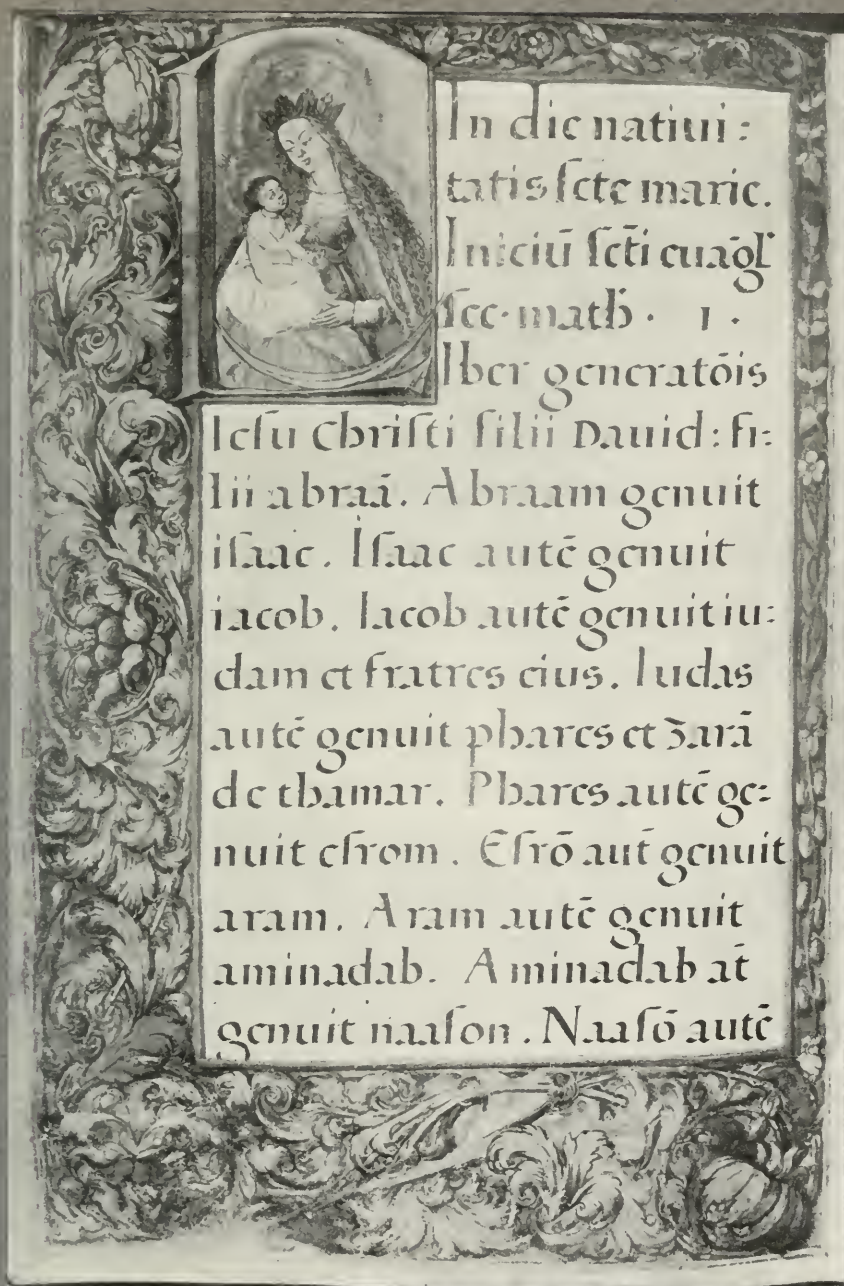 In die natiui:
tatis ſcte marie.
Iniciū ſcti euāgl
ſec. math. 1.
Iber generatōis
Ieſu Chriſti filii Dauid: fi:
lii abraā. Abraam genuit
iſaac. Iſaac autē genuit
iacob. Iacob autē genuit iu:
dam et fratres eius. Iudas
autē genuit phares et zarā
de thamar. Phares autē ge:
nuit eſrom. Eſrō aut̄ genuit
aram. Aram autē genuit
aminadab. Aminadab at̄
genuit naaſon. Naaſō autē